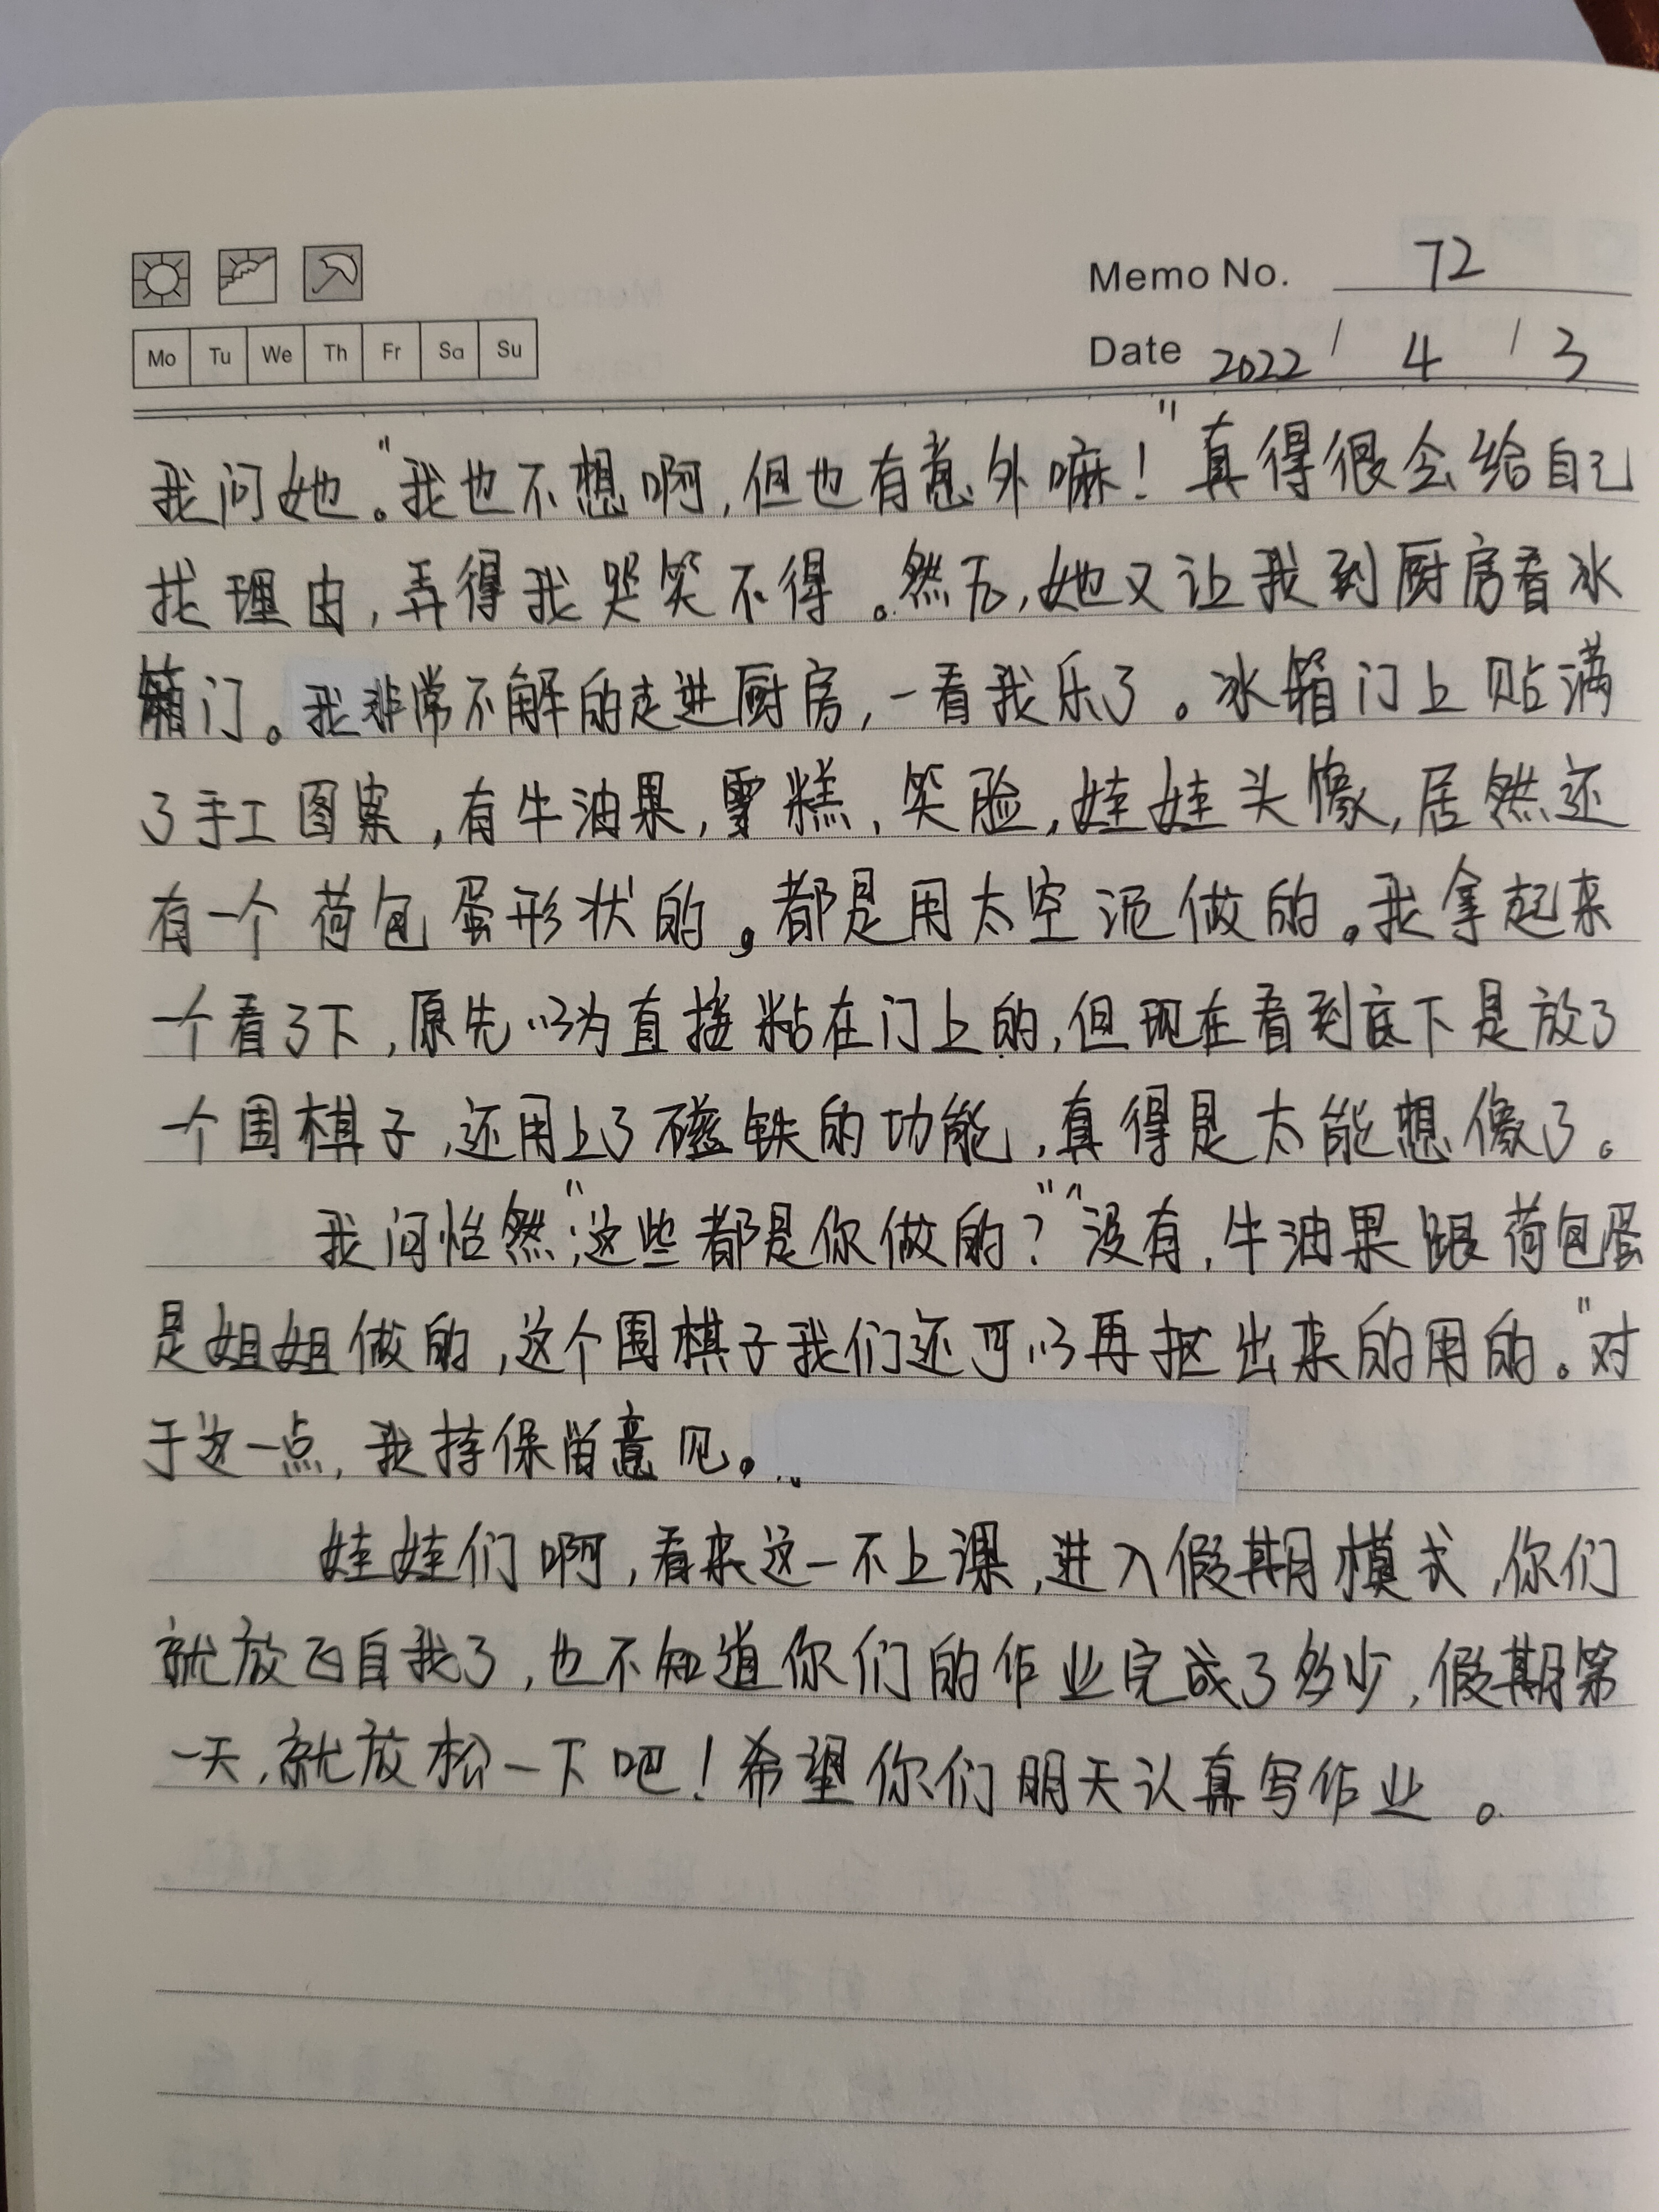 Memo No. 72
Mo Tu We Th Fr Sa Su
Date 2022 / 4 / 3
我问她。"我也不想啊,但也有意外嘛!"真得很会给自己
找理由,弄得我哭笑不得。然后,她又让我到厨房看冰
箱门。我非常不解的走进厨房,一看我乐了。冰箱门上贴满
了手工图案,有牛油果,雪糕,笑脸,娃娃头像,居然还
有一个荷包蛋形状的。都是用太空泥做的。我拿起来
一个看了下,原先以为直接粘在门上的,但现在看到底下是放了
一个围棋子,还用上了磁铁的功能,真得是太能想像了。
我问怡然:"这些都是你做的?""没有,牛油果跟荷包蛋
是姐姐做的,这个围棋子我们还可以再抠出来的用的。"对
于这一点,我持保留意见。
娃娃们啊,看来这一不上课,进入假期模式,你们
就放飞自我了,也不知道你们的作业完成了多少,假期第
一天,就放松一下吧!希望你们明天认真写作业。